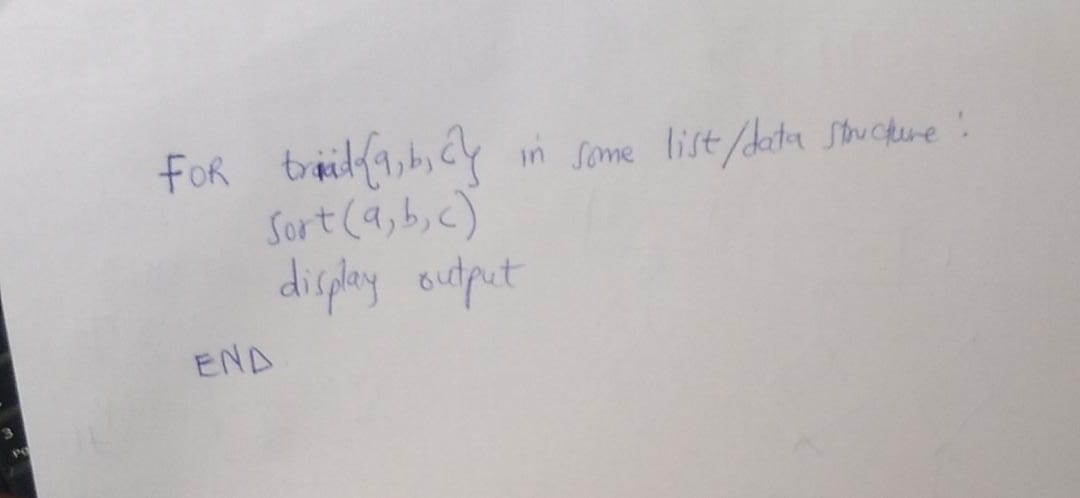 FOR triad{a,b,c} in some list/data structure:
sort(a,b,c)
display output
END
3